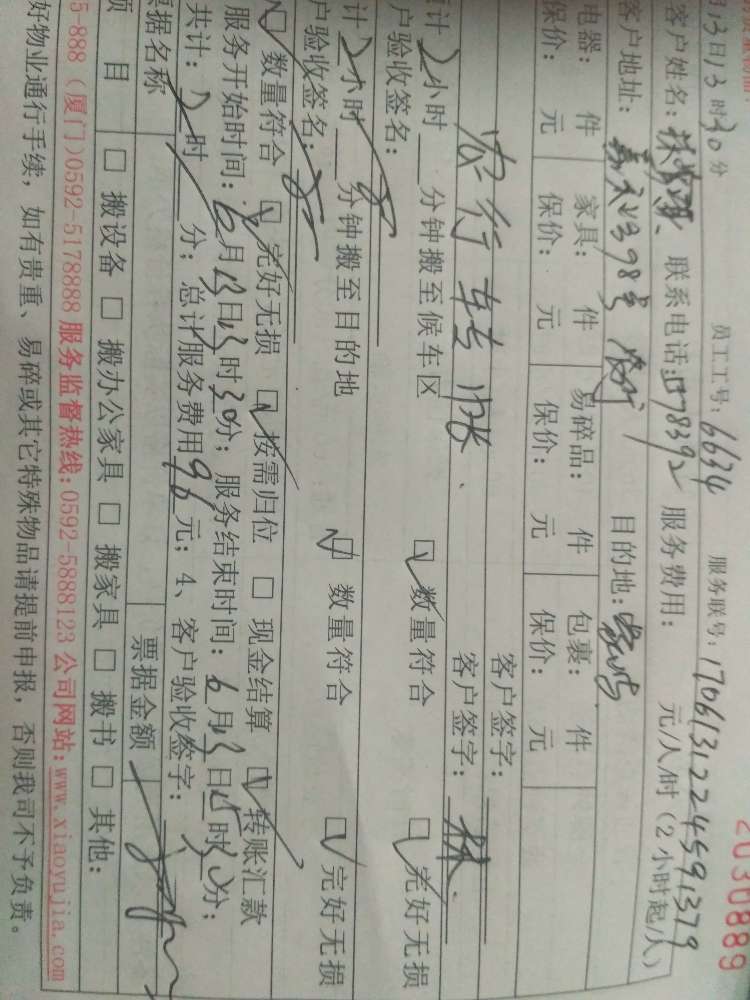 2030889
月13日13时30分 员工工号:6634 服务联号:170613122459 1379
客户姓名: 联系电话: 578392 服务费用: 元/人/时(2小时起/人)
客户地址: 98号 目的地:
电器: 件 家具: 件 易碎品: 件 包裹: 件
保价: 元 保价: 元 保价: 元 保价: 元
客户签字:
农行转账、 客户签字: 林
计2小时 分钟搬至候车区 数量符合 完好无损
户验收签名:
计2小时 分钟搬至目的地 数量符合 完好无损
户验收签名:
数量符合 完好无损 按需归位 现金结算 转账汇款
服务开始时间:6月13日13时30分;服务结束时间:6月13日15时30分;
共计:2时 分;总计服务费用96元;4、客户验收签字:
票据名称 票据金额
项 目 搬设备 搬办公家具 搬家具 搬书 其他:
5-888(厦门)0592-5178888 服务监督热线:0592-5888123 公司网站:www.xiaoyujia.com
好物业通行手续,如有贵重、易碎或其它特殊物品请提前申报,否则我司不予负责。